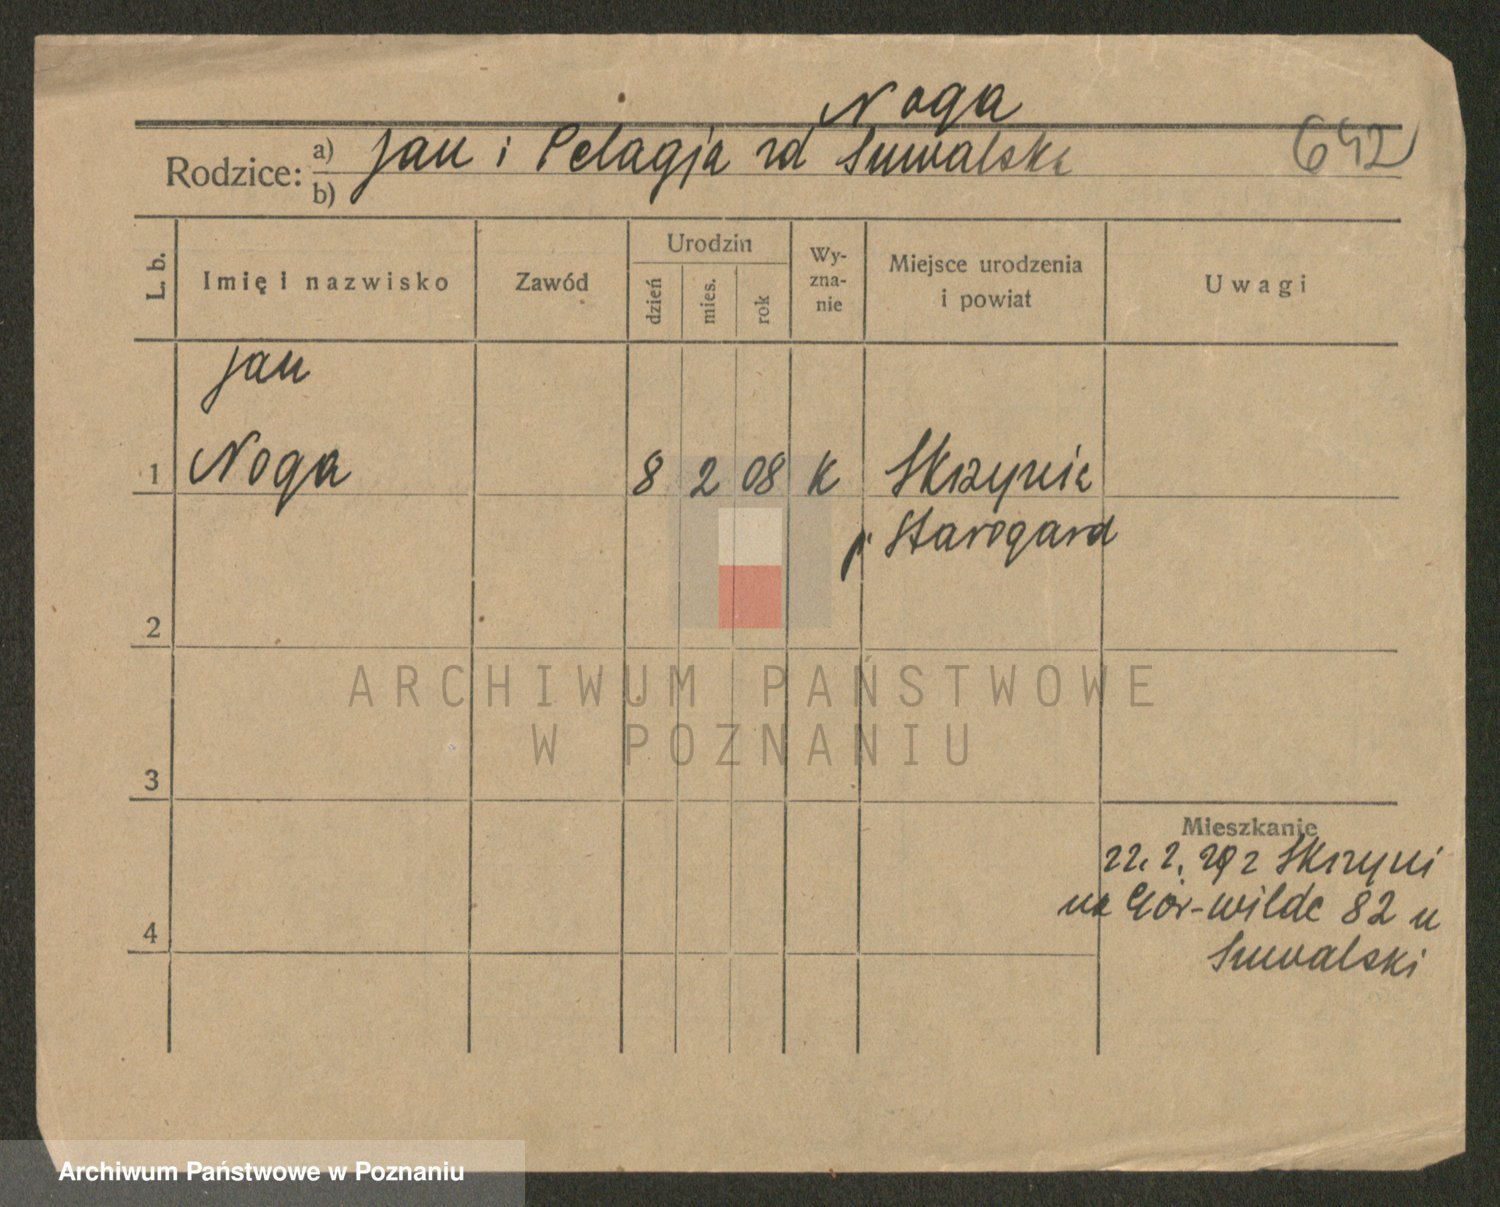 Noga
Rodzice: a) Jan i Pelagja rd Suwalska 642
b)
L. b. Imię i nazwisko Zawód Urodzin Wy-zna-nie Miejsce urodzenia i powiat Uwagi
dzień mies. rok
Jan
1 Noga 8 2 08 K Skrzynie
p. Starogard
2
ARCHIWUM PAŃSTWOWE
W POZNANIU
3
Mieszkanie
22. 2. 29 z Skrzyni
na Gór-wilde 82 u
4
Suwalski
Archiwum Państwowe w Poznaniu